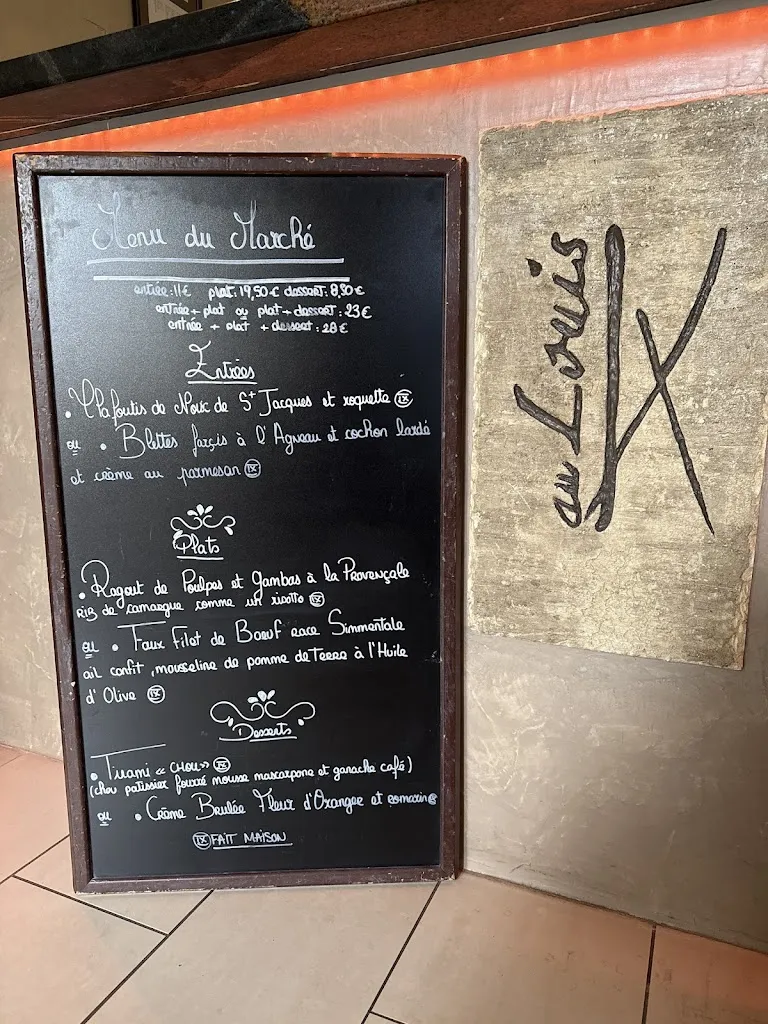 Menu du Marché
entrée: 11€ plat: 19,50€ dessert: 8,50€
entrée + plat ou plat + dessert: 23€
entrée + plat + dessert: 28€
Entrées
• Clafoutis de Noix de St Jacques et roquette IX
ou • Blettes farçis à l'Agneau et cochon lardé
et crème au parmesan IX
Plats
• Ragout de Poulpes et Gambas à la Provençale
RIZ de camargue comme un risotto IX
ou • Faux Filet de Boeuf race Simmentale
ail confit, mousseline de pomme de Terre à l'Huile
d'Olive IX
Desserts
• Tirami « CHOU » IX
(chou patissier fourré mousse mascarpone et ganache café)
ou • Crème Brulée Fleur d'Oranger et romarin IX
IX FAIT MAISON
au Louis
IX